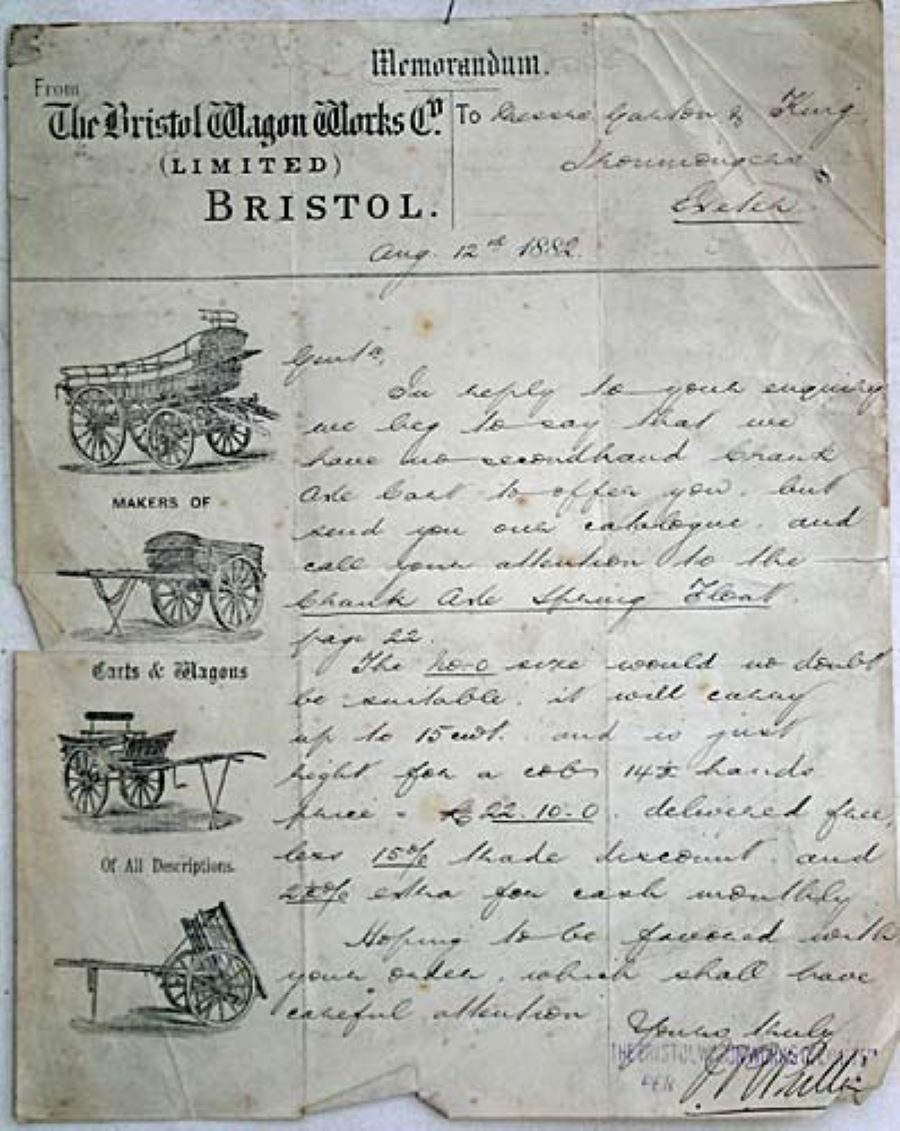 Memorandum.
From
The Bristol Wagon Works Co.
(LIMITED)
BRISTOL.
To Messrs Garton & King
Ironmongers
Exeter
Aug. 12th 1882.
Gentn,
In reply to your enquiry
we beg to say that we
have no secondhand Crank
Axle Cart to offer you, but
send you our catalogue, and
call your attention to the
Crank Axle Spring Float.
page 22.
The no-0 size would no doubt
be suitable. it will carry
up to 15 cwt. and is just
right for a cob 14½ hands
price - £22.10.0. delivered free,
less 15% trade discount. and
2½% extra for cash monthly
Hoping to be favored with
your order. which shall have
careful attention
Yours truly
THE BRISTOL WAGON WORKS
PER
MAKERS OF
Carts & Wagons
Of All Descriptions.